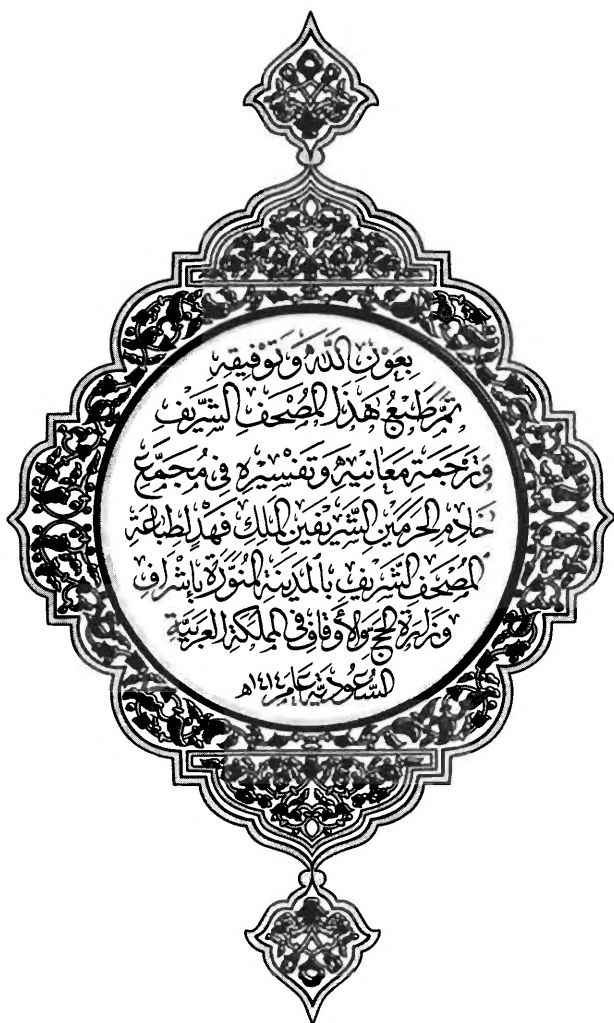 بِعَوْنِ اللَّهِ وَتَوْفِيقِهِ
تَمَّ طَبْعُ هَذَا الْمُصْحَفِ الشَّرِيفِ
وَتَرْجَمَةِ مَعَانِيهِ وَتَفْسِيرِهِ فِي مُجَمَّعِ
خَادِمِ الْحَرَمَيْنِ الشَّرِيفَيْنِ الْمَلِكِ فَهْد لِطِبَاعَةِ
الْمُصْحَفِ الشَّرِيفِ بِالْمَدِينَةِ الْمُنَوَّرَةِ بِإِشْرَافِ
وَزَارَةِ الْحَجِّ وَالْأَوْقَافِ فِي الْمَمْلَكَةِ الْعَرَبِيَّةِ
السُّعُودِيَّةِ عَامَ ١٤١٤هـ